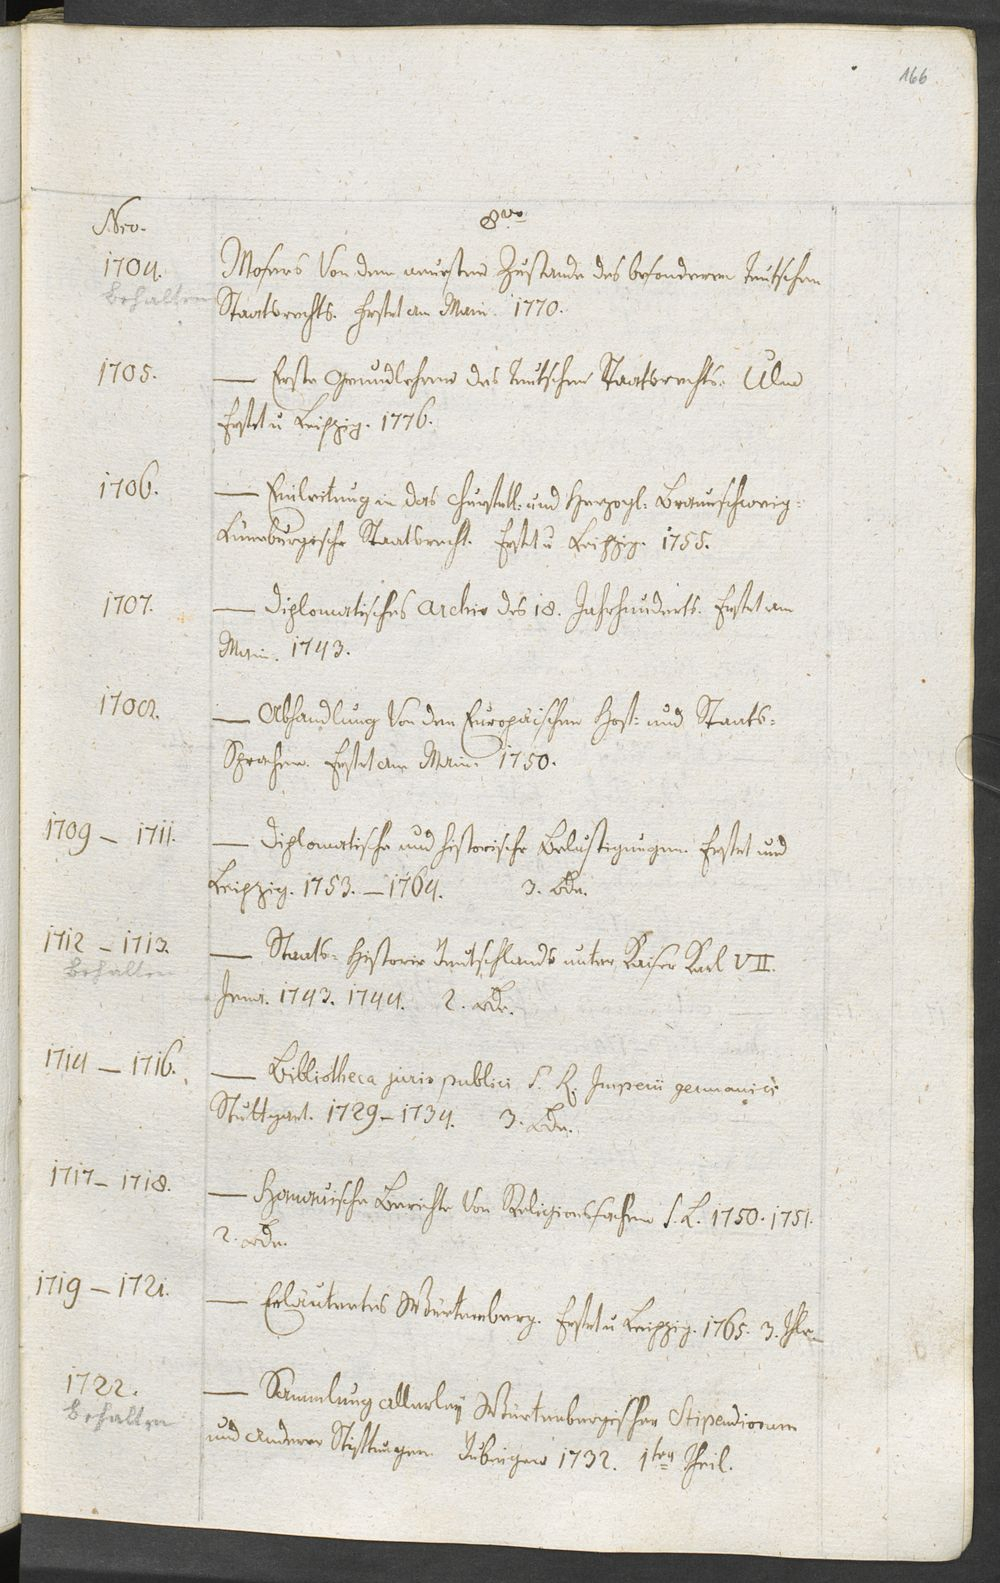 166
Nro.
8vo
1704.
Mosers Von dem neuesten Zustande des besonderen Teutschen
behalten
Staatsrechts. Frftrt am Main. 1770.
1705.
— Erste Grundlehren des Teutschen Staatsrechts. Ulm
Frftrt u Leipzig. 1776.
1706.
— Einleitung in das Churfstl: und Herzogl: Braunschweig-
Lüneburgische Staatsrecht. Frftrt u Leipzig. 1755.
1707.
— Diplomatisches Archiv des 18. Jahrhunderts. Frftrt am
Main. 1743.
1708.
— Abhandlung Von den Europäischen Hof- und Staats-
Sprachen. Frftrt am Main. 1750.
1709 – 1711.
— Diplomatische und historische Belustigungen Frftrt und
Leipzig. 1753. – 1764. 3. Bde.
1712 – 1713.
— Staats-Historie Teutschlands unter Kaiser Karl VII.
behalten
Jena. 1743. 1744. 2. Bde.
1714 – 1716.
— Bibliotheca juris publici S. R. Imperii germanici
Stuttgart. 1729 – 1734. 3. Bde.
1717 – 1718.
— Hanauische Berichte Von Religionssachen s. L. 1750. 1751.
2. Bde.
1719 – 1721.
— Erläutertes Würtemberg. Frftrt u Leipzig. 1765. 3. Thle.
1722.
— Sammlung allerley Würtenbergischer Stipendiorum
behalten
und anderer Stiftungen Tübingen 1732. 1ter Theil.